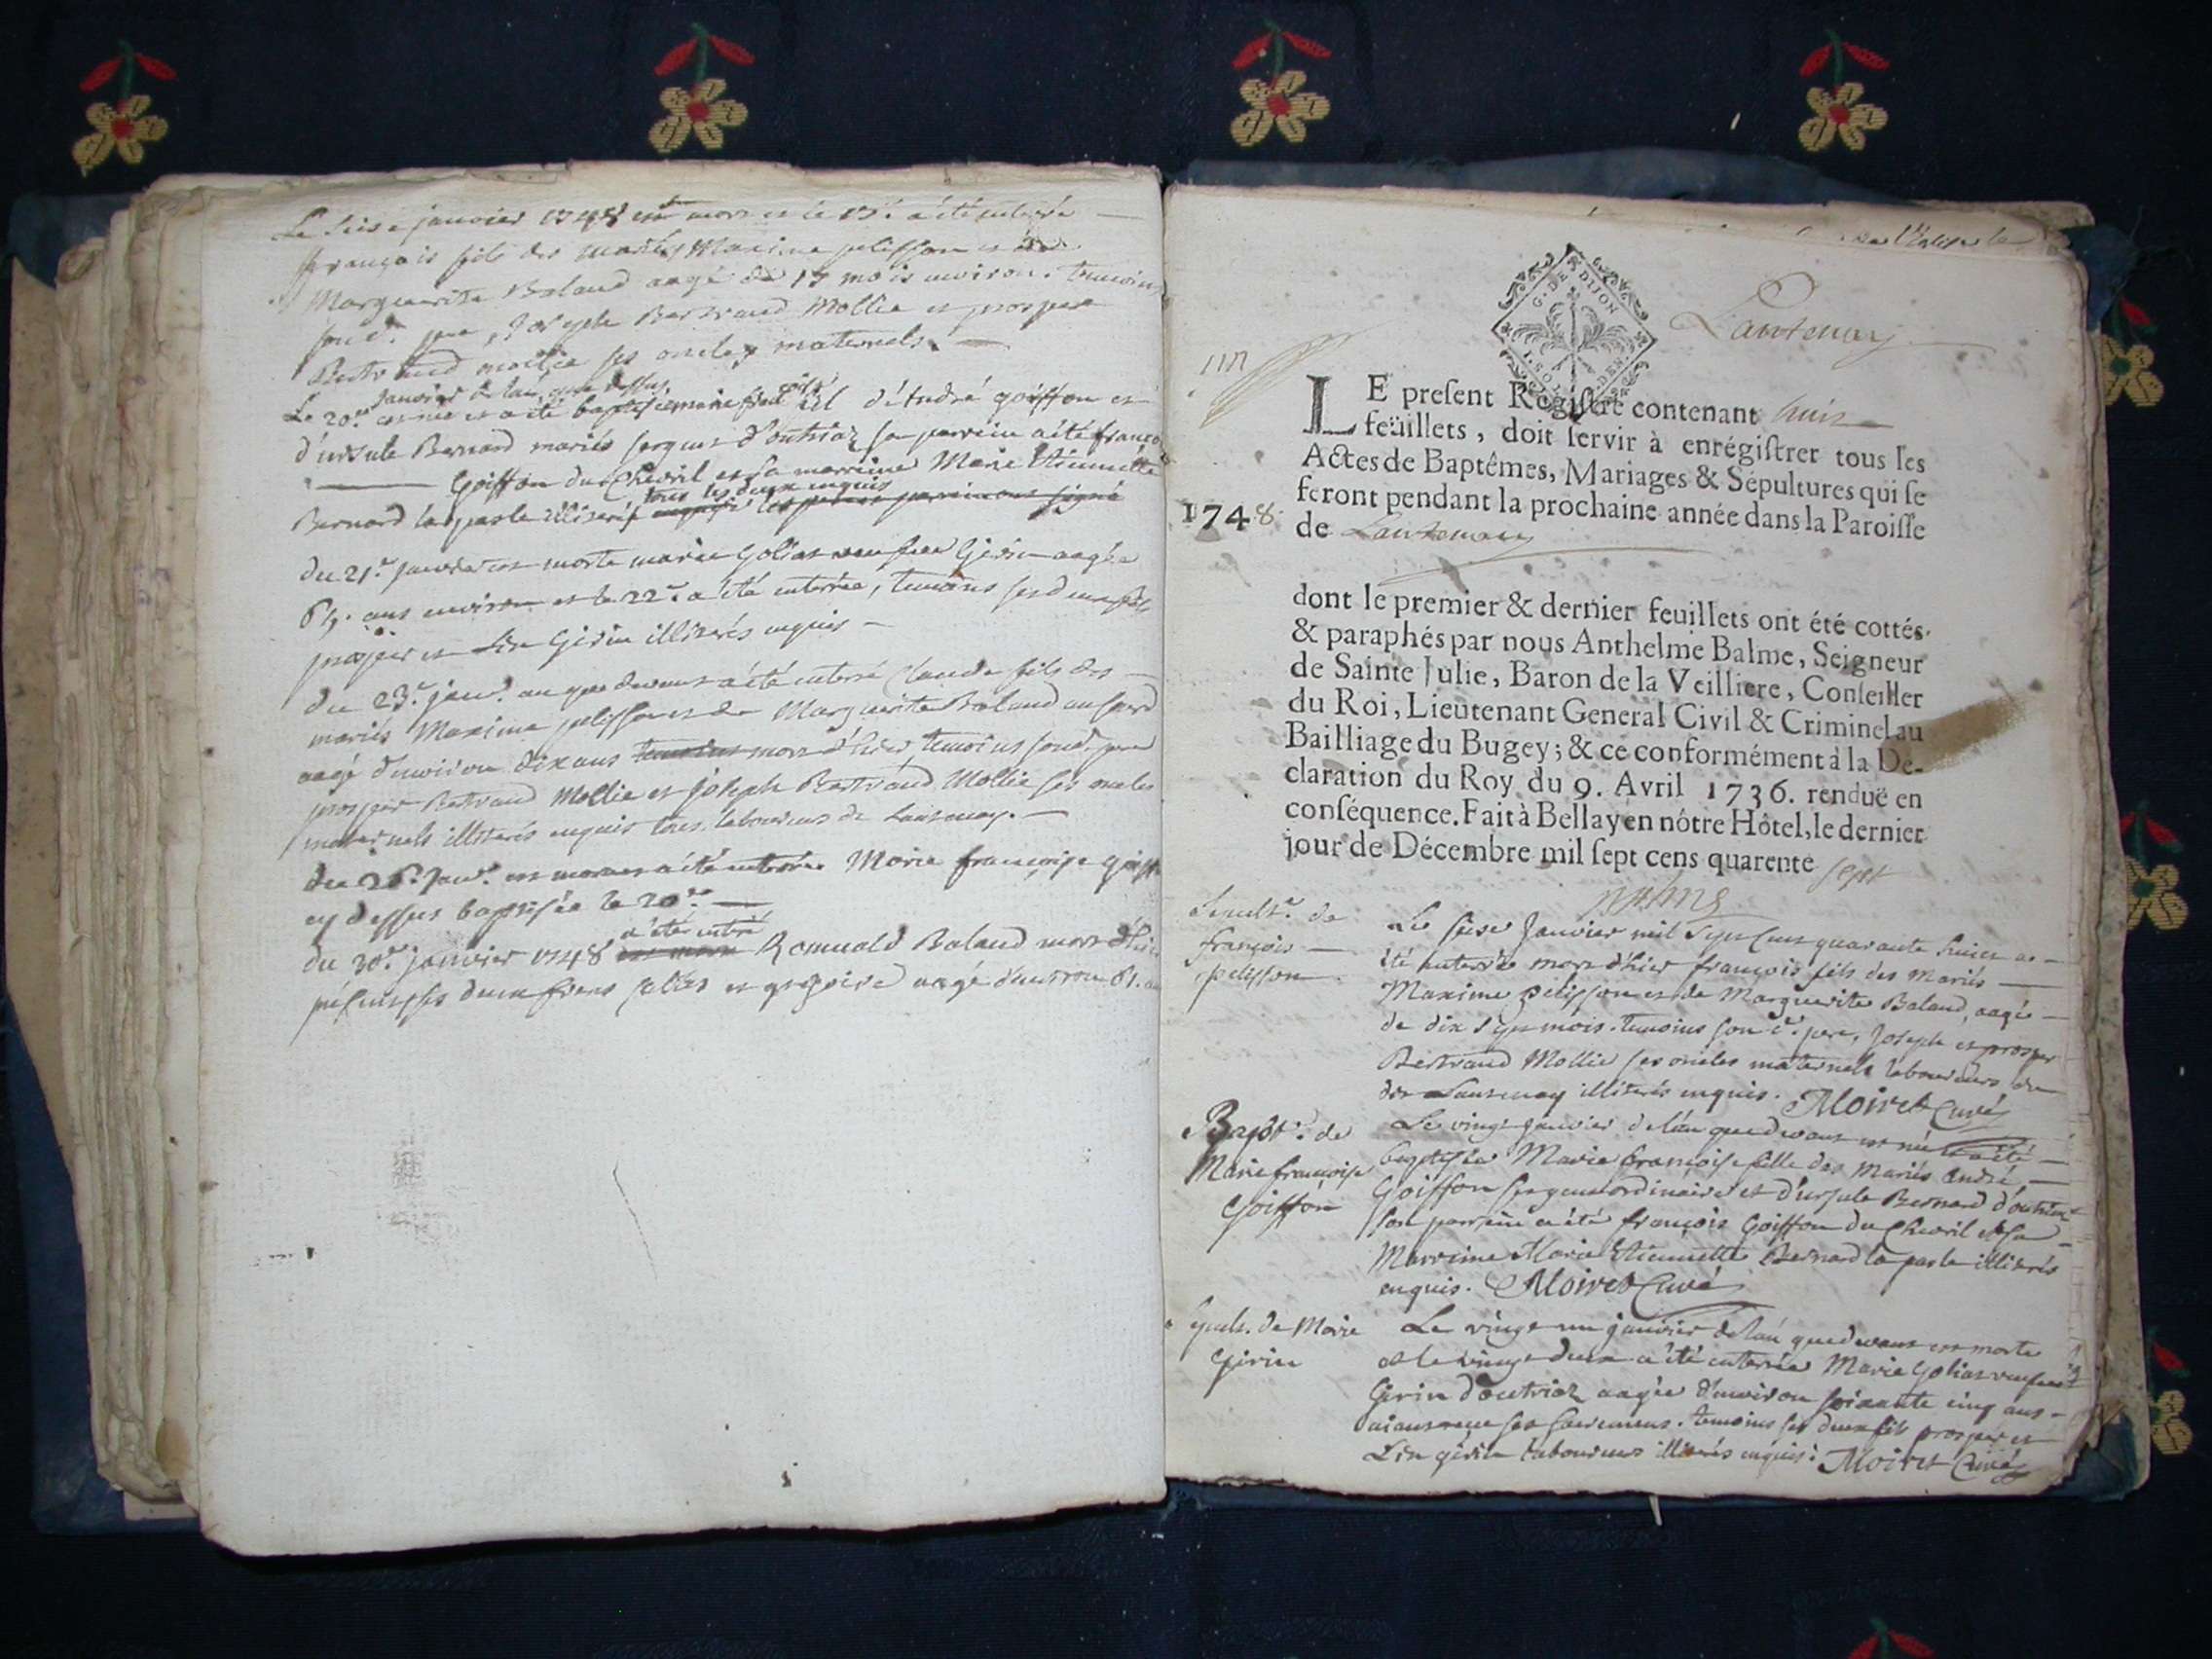 Le seise janvier 1748 est mors et le 17e. a été enterré
françois fils des mariés Maxime pelisson et de
Marguerite Baland aagé de 17 mois environ. temoins
son d. pere, Joseph Bertrand Mollie et prosper
Bertrand mollie ses oncles maternels.
janvier de l'an que dessus
Le 20e. est née et a été baptisée marie françoise
fille d'André goiffon et
d'ursule Bernard mariés sergent d'outriaz son parrein a été françois
Goiffon du Chevril et sa marreine Marie Etiennette
tous les deux enquis
Bernard la pasle illiterés
du 21e. janvier est morte marie Golias veufve Girin aagée
65. ans environ et le 22e. a été enterrée, temoins ses deux fils
prosper et Lin Girin illiterés enquis
du 23e. janv. an que devant a été enterré Claude fils des
mariés Maxime pelisson et de Marguerite Baland
aagé d'environ dix ans temoins mors d'hier temoins son d. pere
prosper Bertrand Mollie et Joseph Bertrand Mollie ses oncles
maternels illiterés enquis tous laboureurs de Lantenay.
du 26e. janv. est morte et a été enterrée Marie françoise goiffon
cy dessus baptisée le 20e.
a été enterré
du 30e. janvier 1748 est mors Romuald Baland mors d'hier
presents ses deux freres et gregoire aagé d'environ
de l'Eglise le
G. DE DIJON
Lantenay
LE present Registre contenant huit
feüillets, doit servir à enrégistrer tous les
Actes de Baptêmes, Mariages & Sépultures qui se
feront pendant la prochaine année dans la Paroisse
1748.
de Lantenay
dont le premier & dernier feuillets ont été cottés
& paraphés par nous Anthelme Balme, Seigneur
de Sainte Julie, Baron de la Veilliere, Conseiller
du Roi, Lieutenant General Civil & Criminel au
Bailliage du Bugey; & ce conformément à la Dé-
claration du Roy du 9. Avril 1736. renduë en
conséquence. Fait à Bellay en nôtre Hôtel, le dernier
jour de Décembre mil sept cens quarente sept
Balme
Sepult.e de
françois
pelisson
Le seise Janvier mil sept cens quarante huict a
été enterré mors d'hier françois fils des mariés
Maxime pelisson et de Marguerite Baland, aagé
de dix sept mois. temoins son d. pere, Joseph et prosper
Bertrand Mollie ses oncles maternels laboureurs
de Lantenay illiterés enquis. Moiret Curé
Bapt.e de
Marie françoise
Goiffon
Le vingt janvier de l'an que devant est née et a été
baptisée Marie françoise fille des mariés André
Goiffon sergent ordinaire et d'ursule Bernard d'outriaz
son parrein a été françois Goiffon du Chevril et sa
Marreine Marie Etiennette Bernard la pasle illiterés
enquis. Moiret Curé
Sepult. de Marie
Girin
Le vingt un janvier de l'an que devant est morte
et le vingt deux a été enterrée Marie Golias veufve
Girin d'outriaz aagée d'environ soixante cinq ans
aiant reçu ses sacremens. temoins ses deux fils prosper et
Lin girin laboureurs illiterés enquis: Moiret Curé